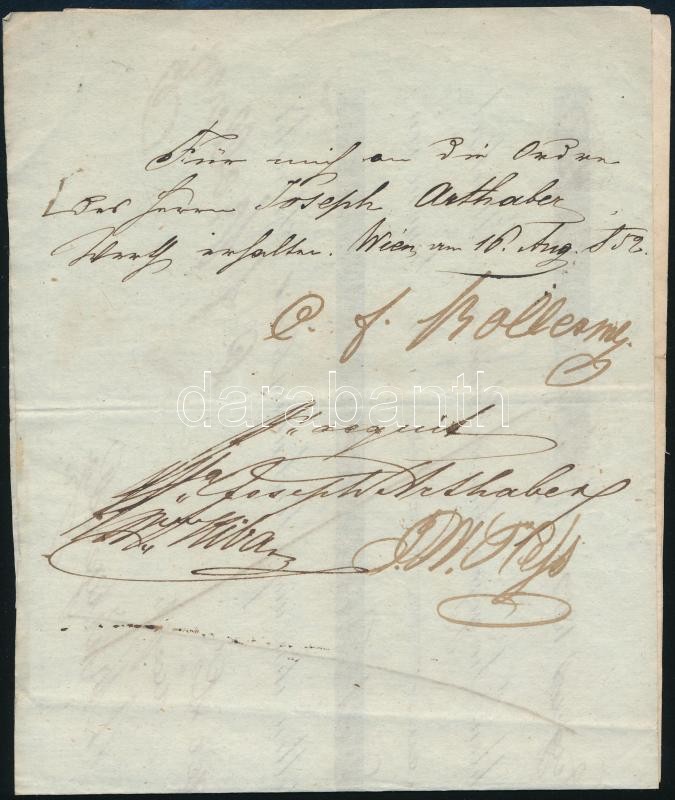 Für mich an die Ordre
des Herrn Joseph Arthaber
Werth erhalten. Wien am 16. Aug. 852.
C. f.
darabanth
acquit
Joseph Arthaber
J. W.